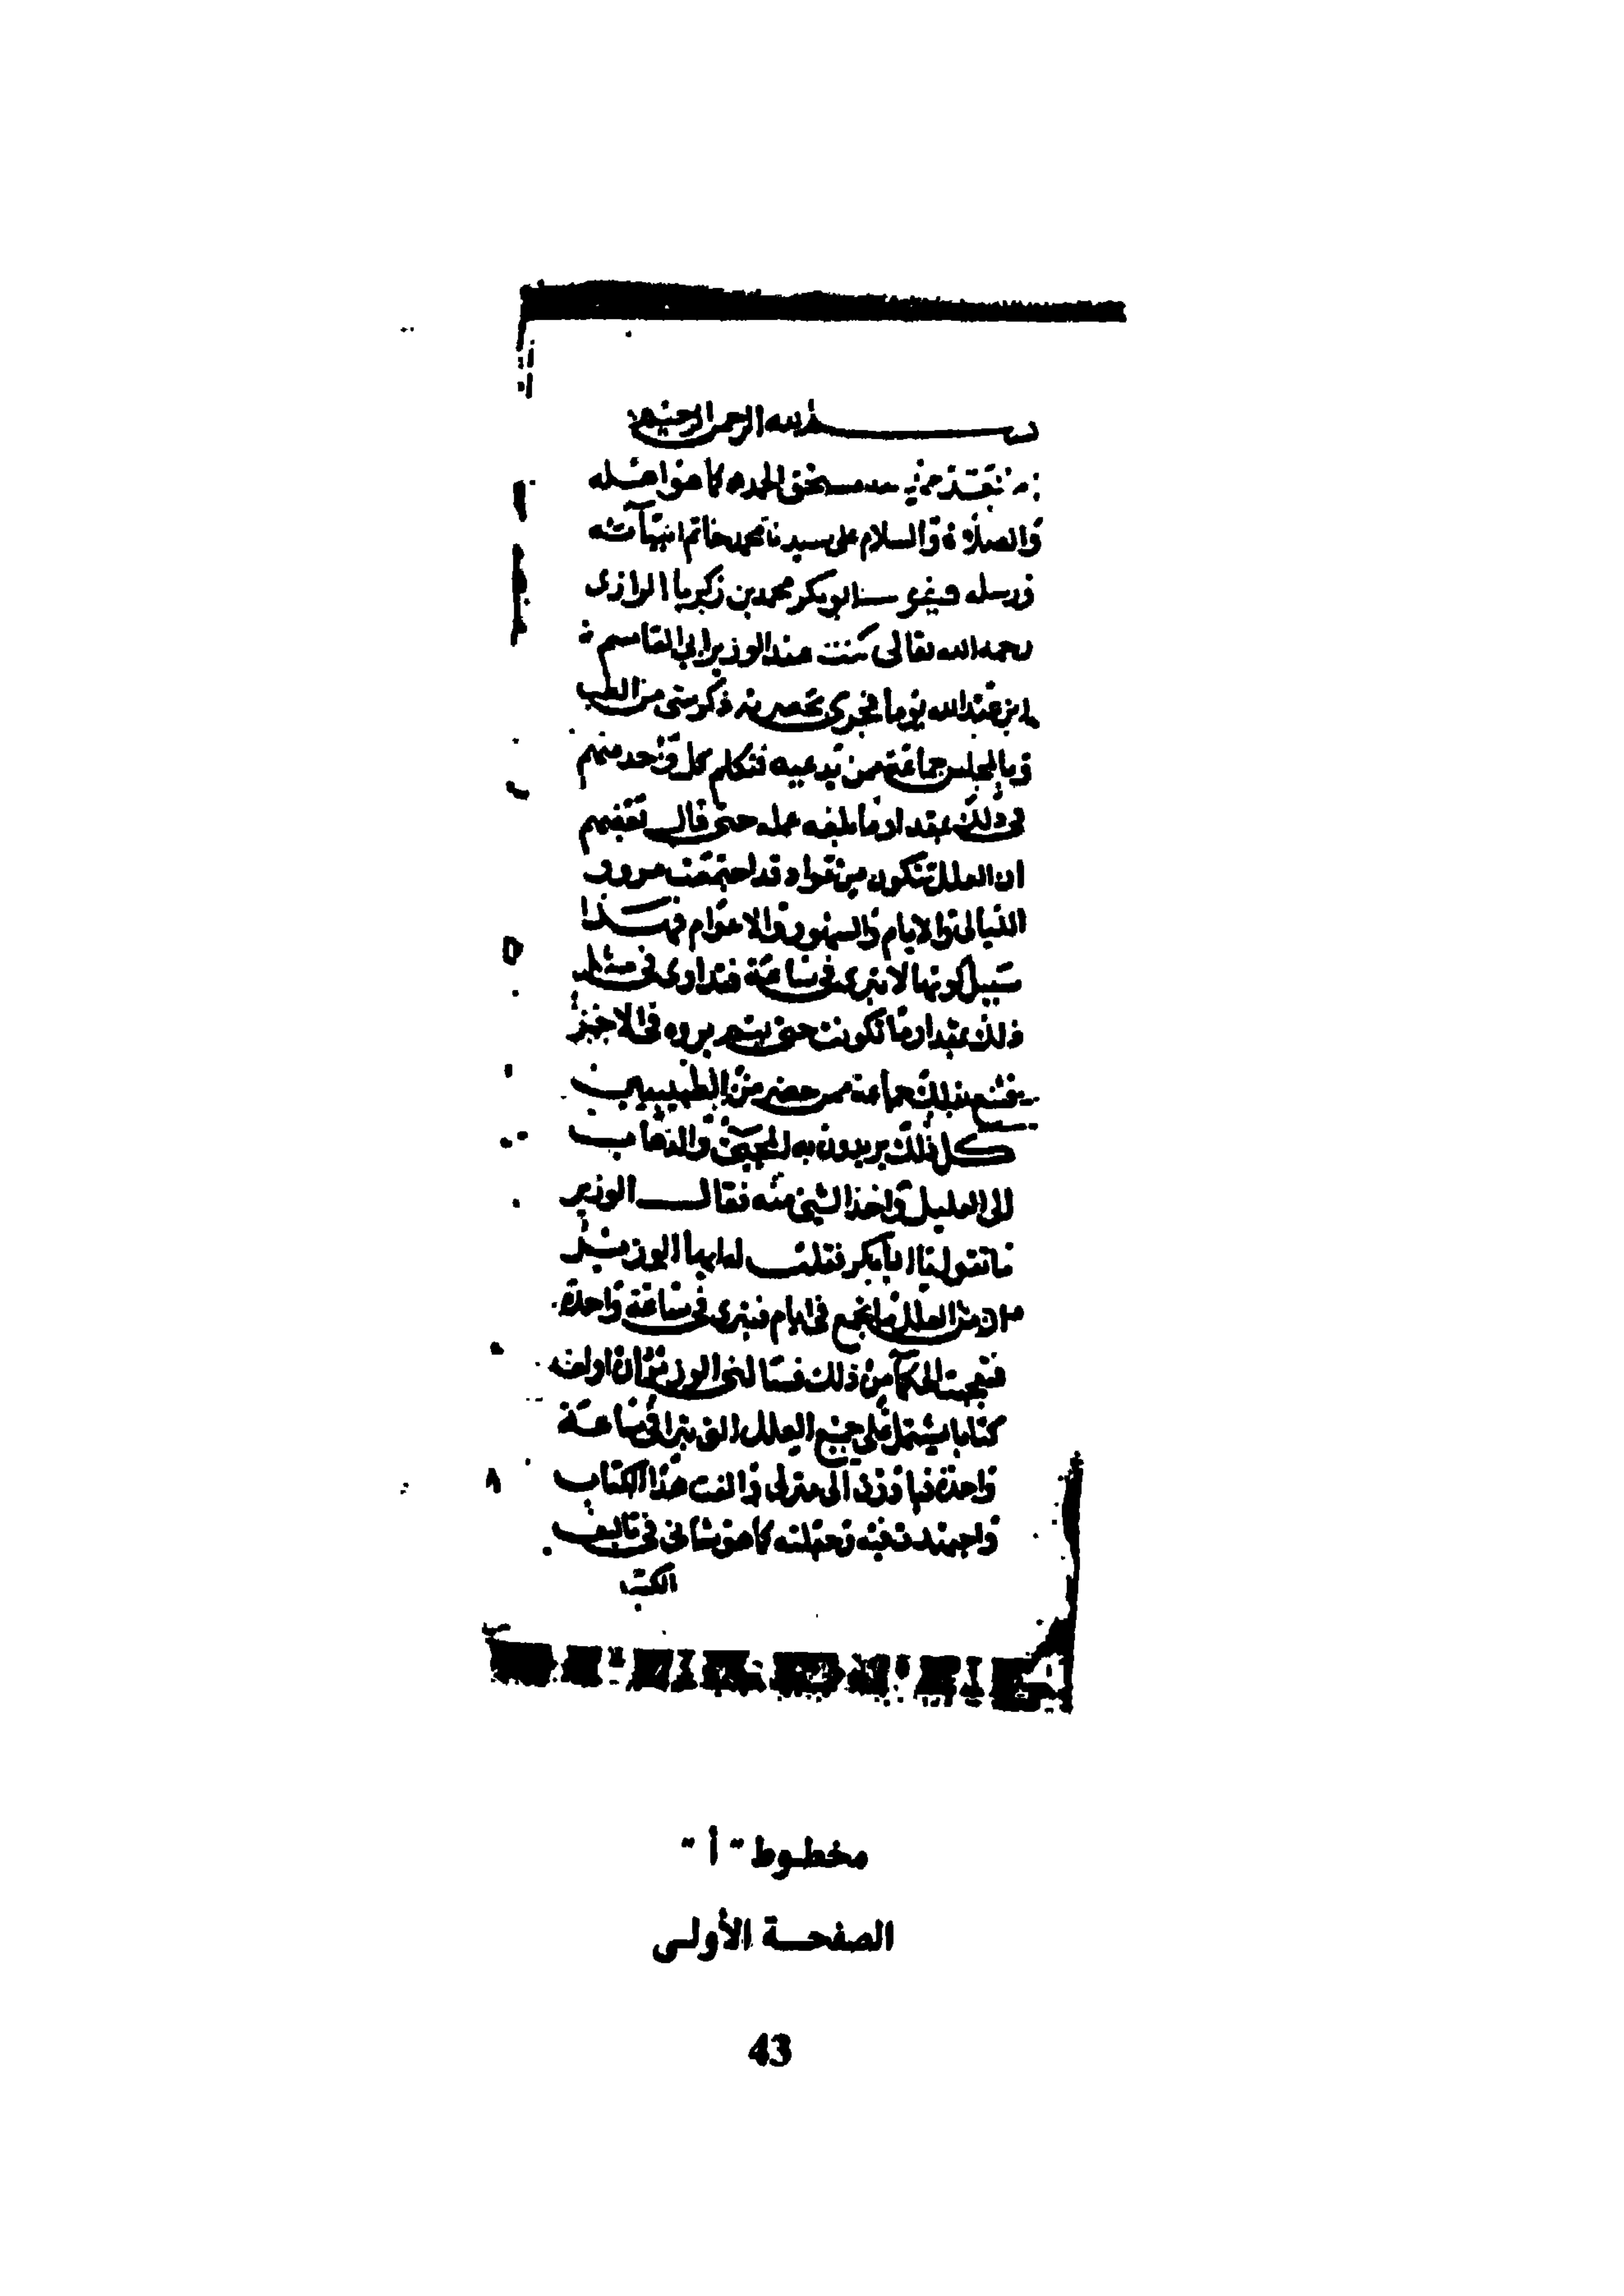 بسم الله الرحمن الرحيم
بعد حمد الله مستحق الحمد كما هو اهله
والصلاة والسلام على سيدنا محمد خاتم انبيآئه
ورسله ابو بكر محمد بن زكريا الرازي
رحمه الله تعالى كنت عند الوزير ابي القاسم
ابن عبدالله يوما فجرى بحضرته ذكر شي من الطب
وبالمجلس جماعة ممن يدعيه فتكلم كل واحد منهم
في ذلك بمقدار ما بلغه علمه حتى قال بعضهم
ان العلل تتكون من مواد قد اجتمعت مرور
الليالى والايام والشهور والاعوام فهذا
سبيل كونها لا تبرى في ساعة فتداوى في مثل
ذلك بمقدار ما تكونت حتى يتم بروه في الاخير
جماعة ممن حضر من الطبيبين
كل ذلك يريدون به المجئ والذهاب
الى العليل واخذ الشئ منه فقال الوزير
ما تقول يا ابا بكر فقلت له ايها الوزير
ان من العلل ما يجمع في ايام فيبرى في ساعة واحدة
فتعجبت الحكمآ من ذلك فسالني الوزير ان اولف
كتابا يشتمل على جميع العلل التي تبرا في ساعة
واحدة فبادرت الى منزلي والفت هذا الكتاب
واجتهدت فيه كما هو شاني في تاليف
الكتب
مخطوط "أ"
الصفحة الأولى
43